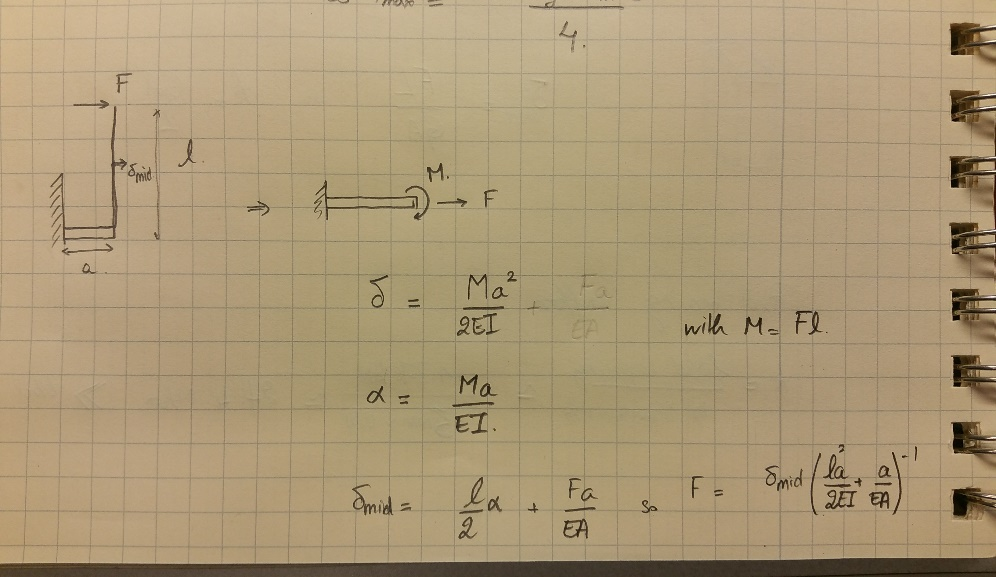 max =
4.
F
δmid
l.
a.
⇒
M.
F
δ = Ma²/2EI + Fa/EA
with M = Fl.
α = Ma/EI.
δmid = l/2 α + Fa/EA so F = δmid (l²a/2EI + a/EA)⁻¹